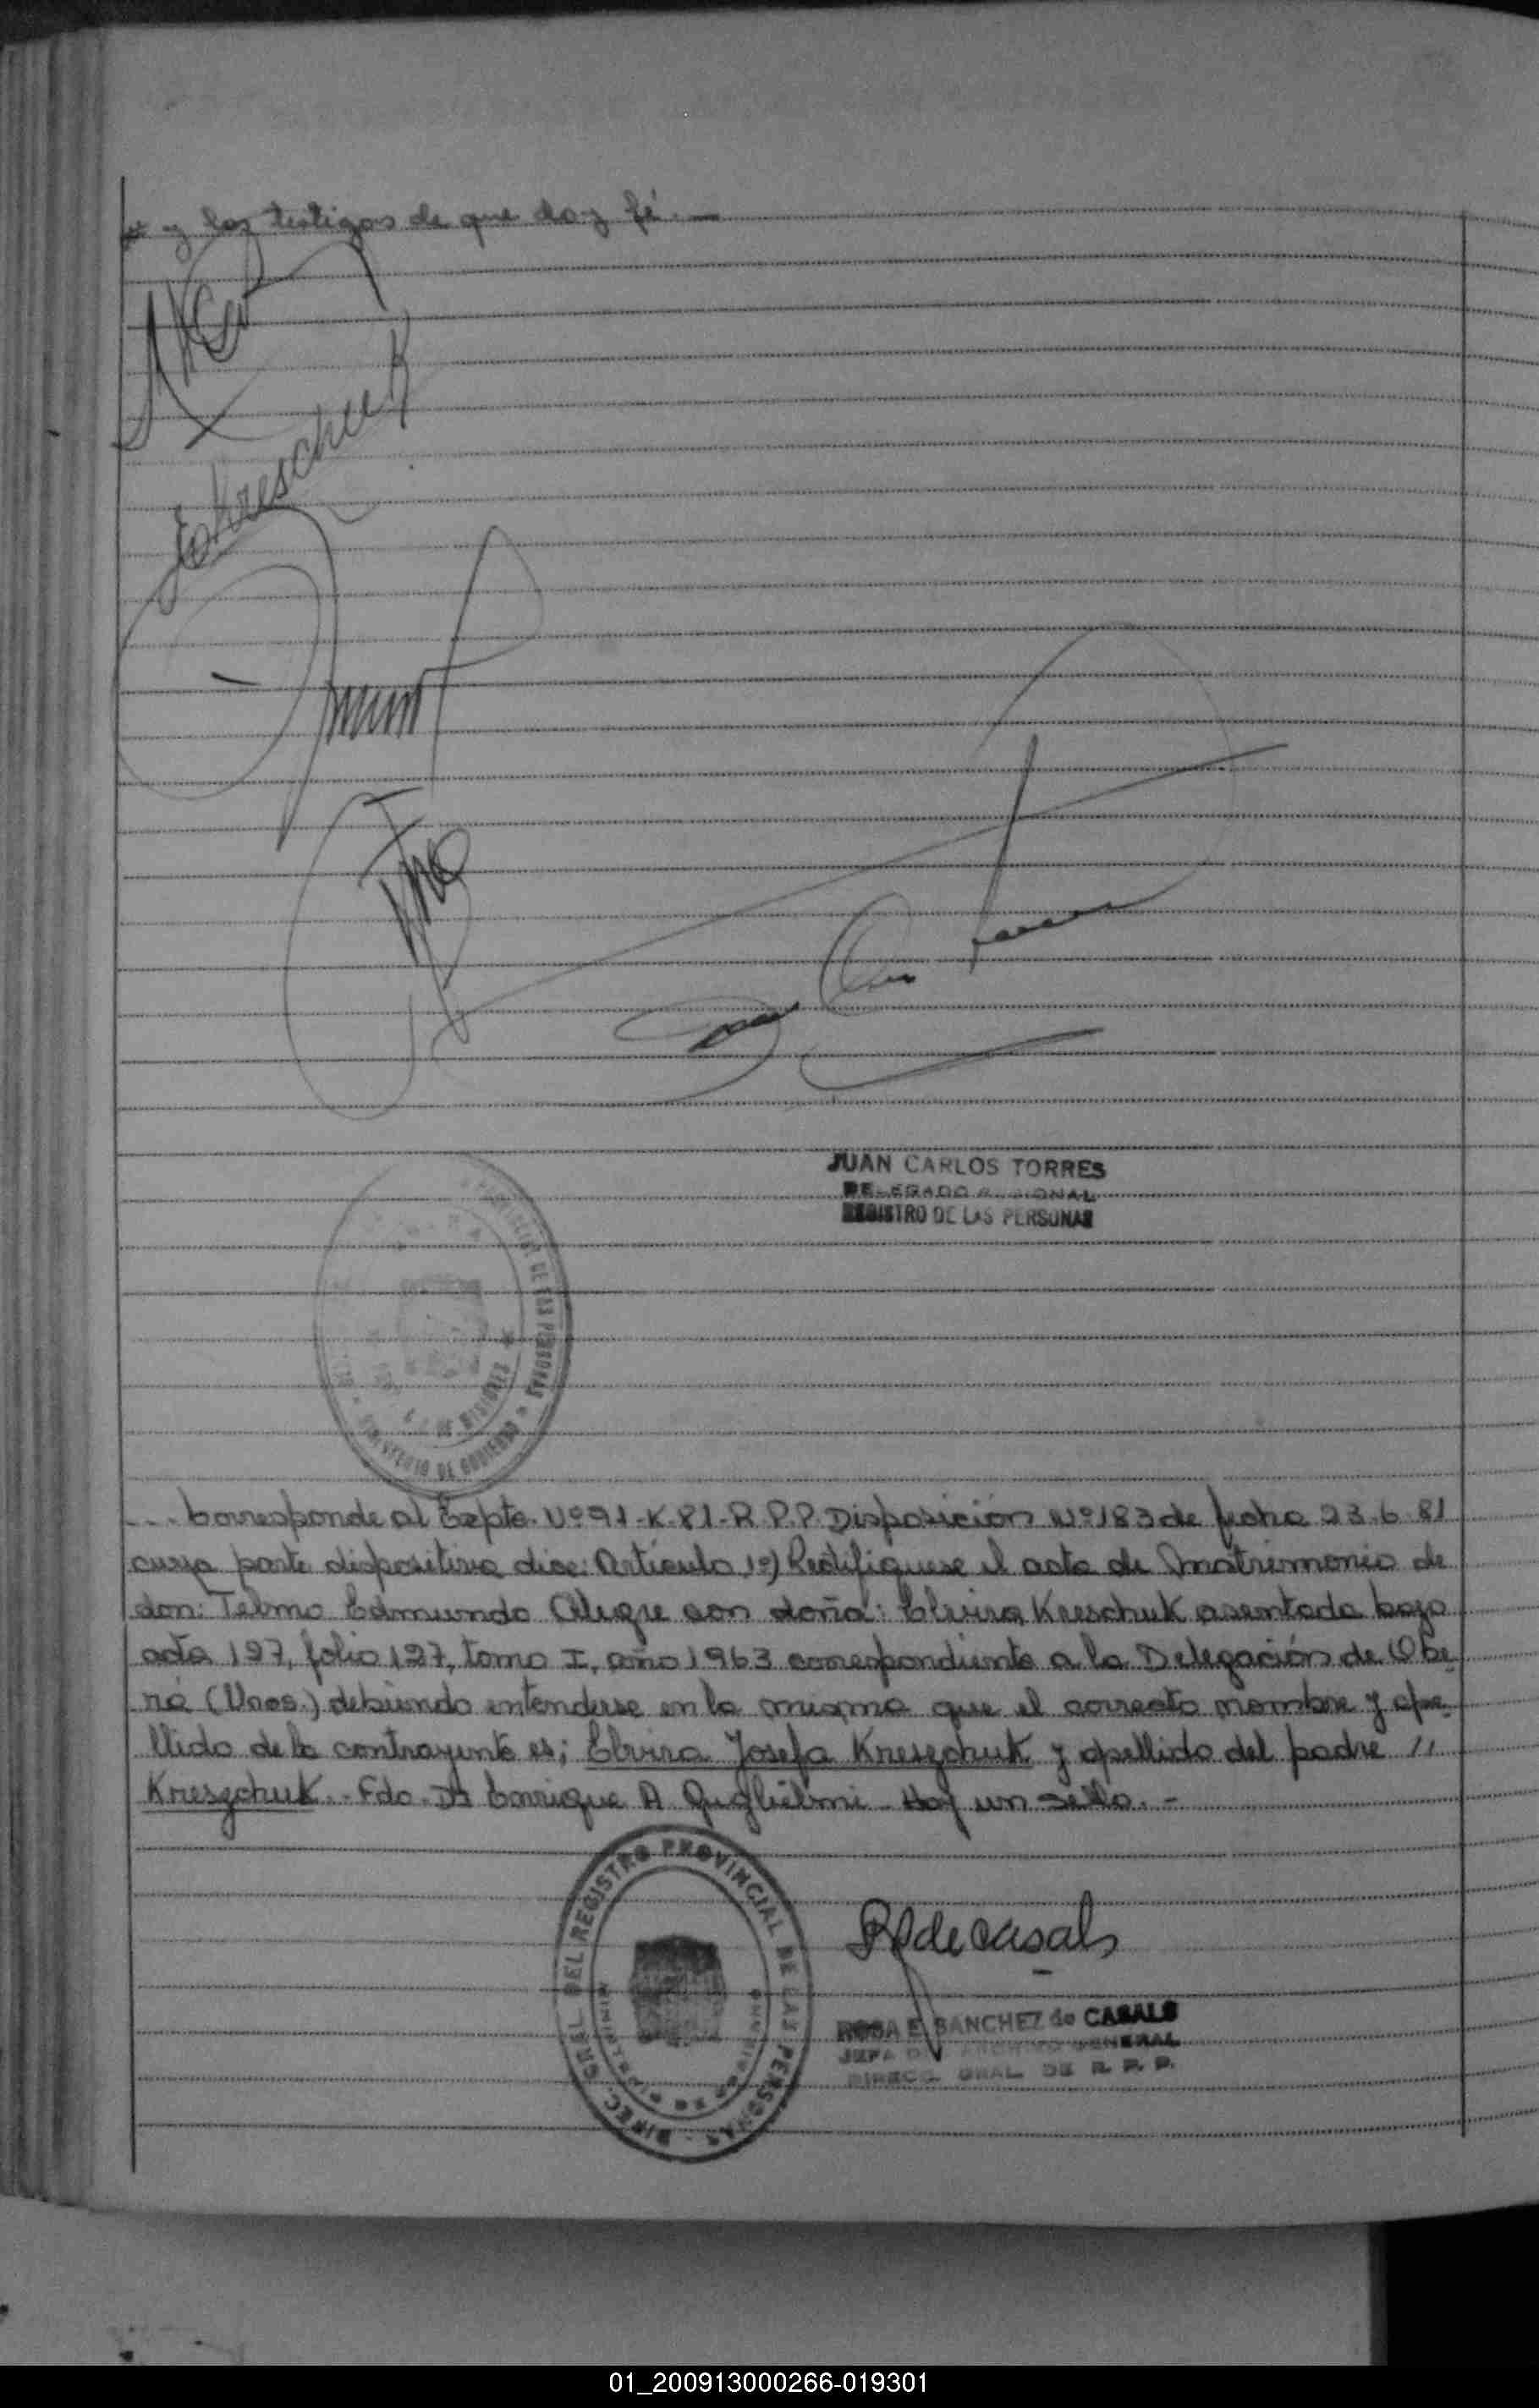 y los testigos de que doy fé. —
Kreschuk
JUAN CARLOS TORRES
DELEGADO REGIONAL
REGISTRO DE LAS PERSONAS
DE LAS PERSONAS
DE MISIONES
MINISTERIO DE GOBIERNO
... Corresponde al Expte. Nº 91-K-81-R.P.P. Disposición Nº 183 de fecha 23-6-81
cuya parte dispositiva dice: Artículo 1º) Rectifiquese el acta de Matrimonio de
don: Telmo Edmundo Alegre con doña: Elvira Kreschuk asentada bajo
acta 127, folio 127, tomo I, año 1963 correspondiente a la Delegación de Obe-
rá (Mnes.) debiendo entenderse en la misma que el correcto nombre y ape-
llido de la contrayente es; Elvira Josefa Kreszchuk y apellido del padre //
Kreszchuk.- Fdo. Dr Enrique A Guglielmi - Hay un sello. -
DIREC. GRAL. DEL REGISTRO PROVINCIAL DE LAS PERSONAS
R S de Casals
ROSA E. SANCHEZ de CASALS
JEFA ARCHIVO GENERAL
DIRECC. GRAL. DE R. P. P.
01_200913000266-019301